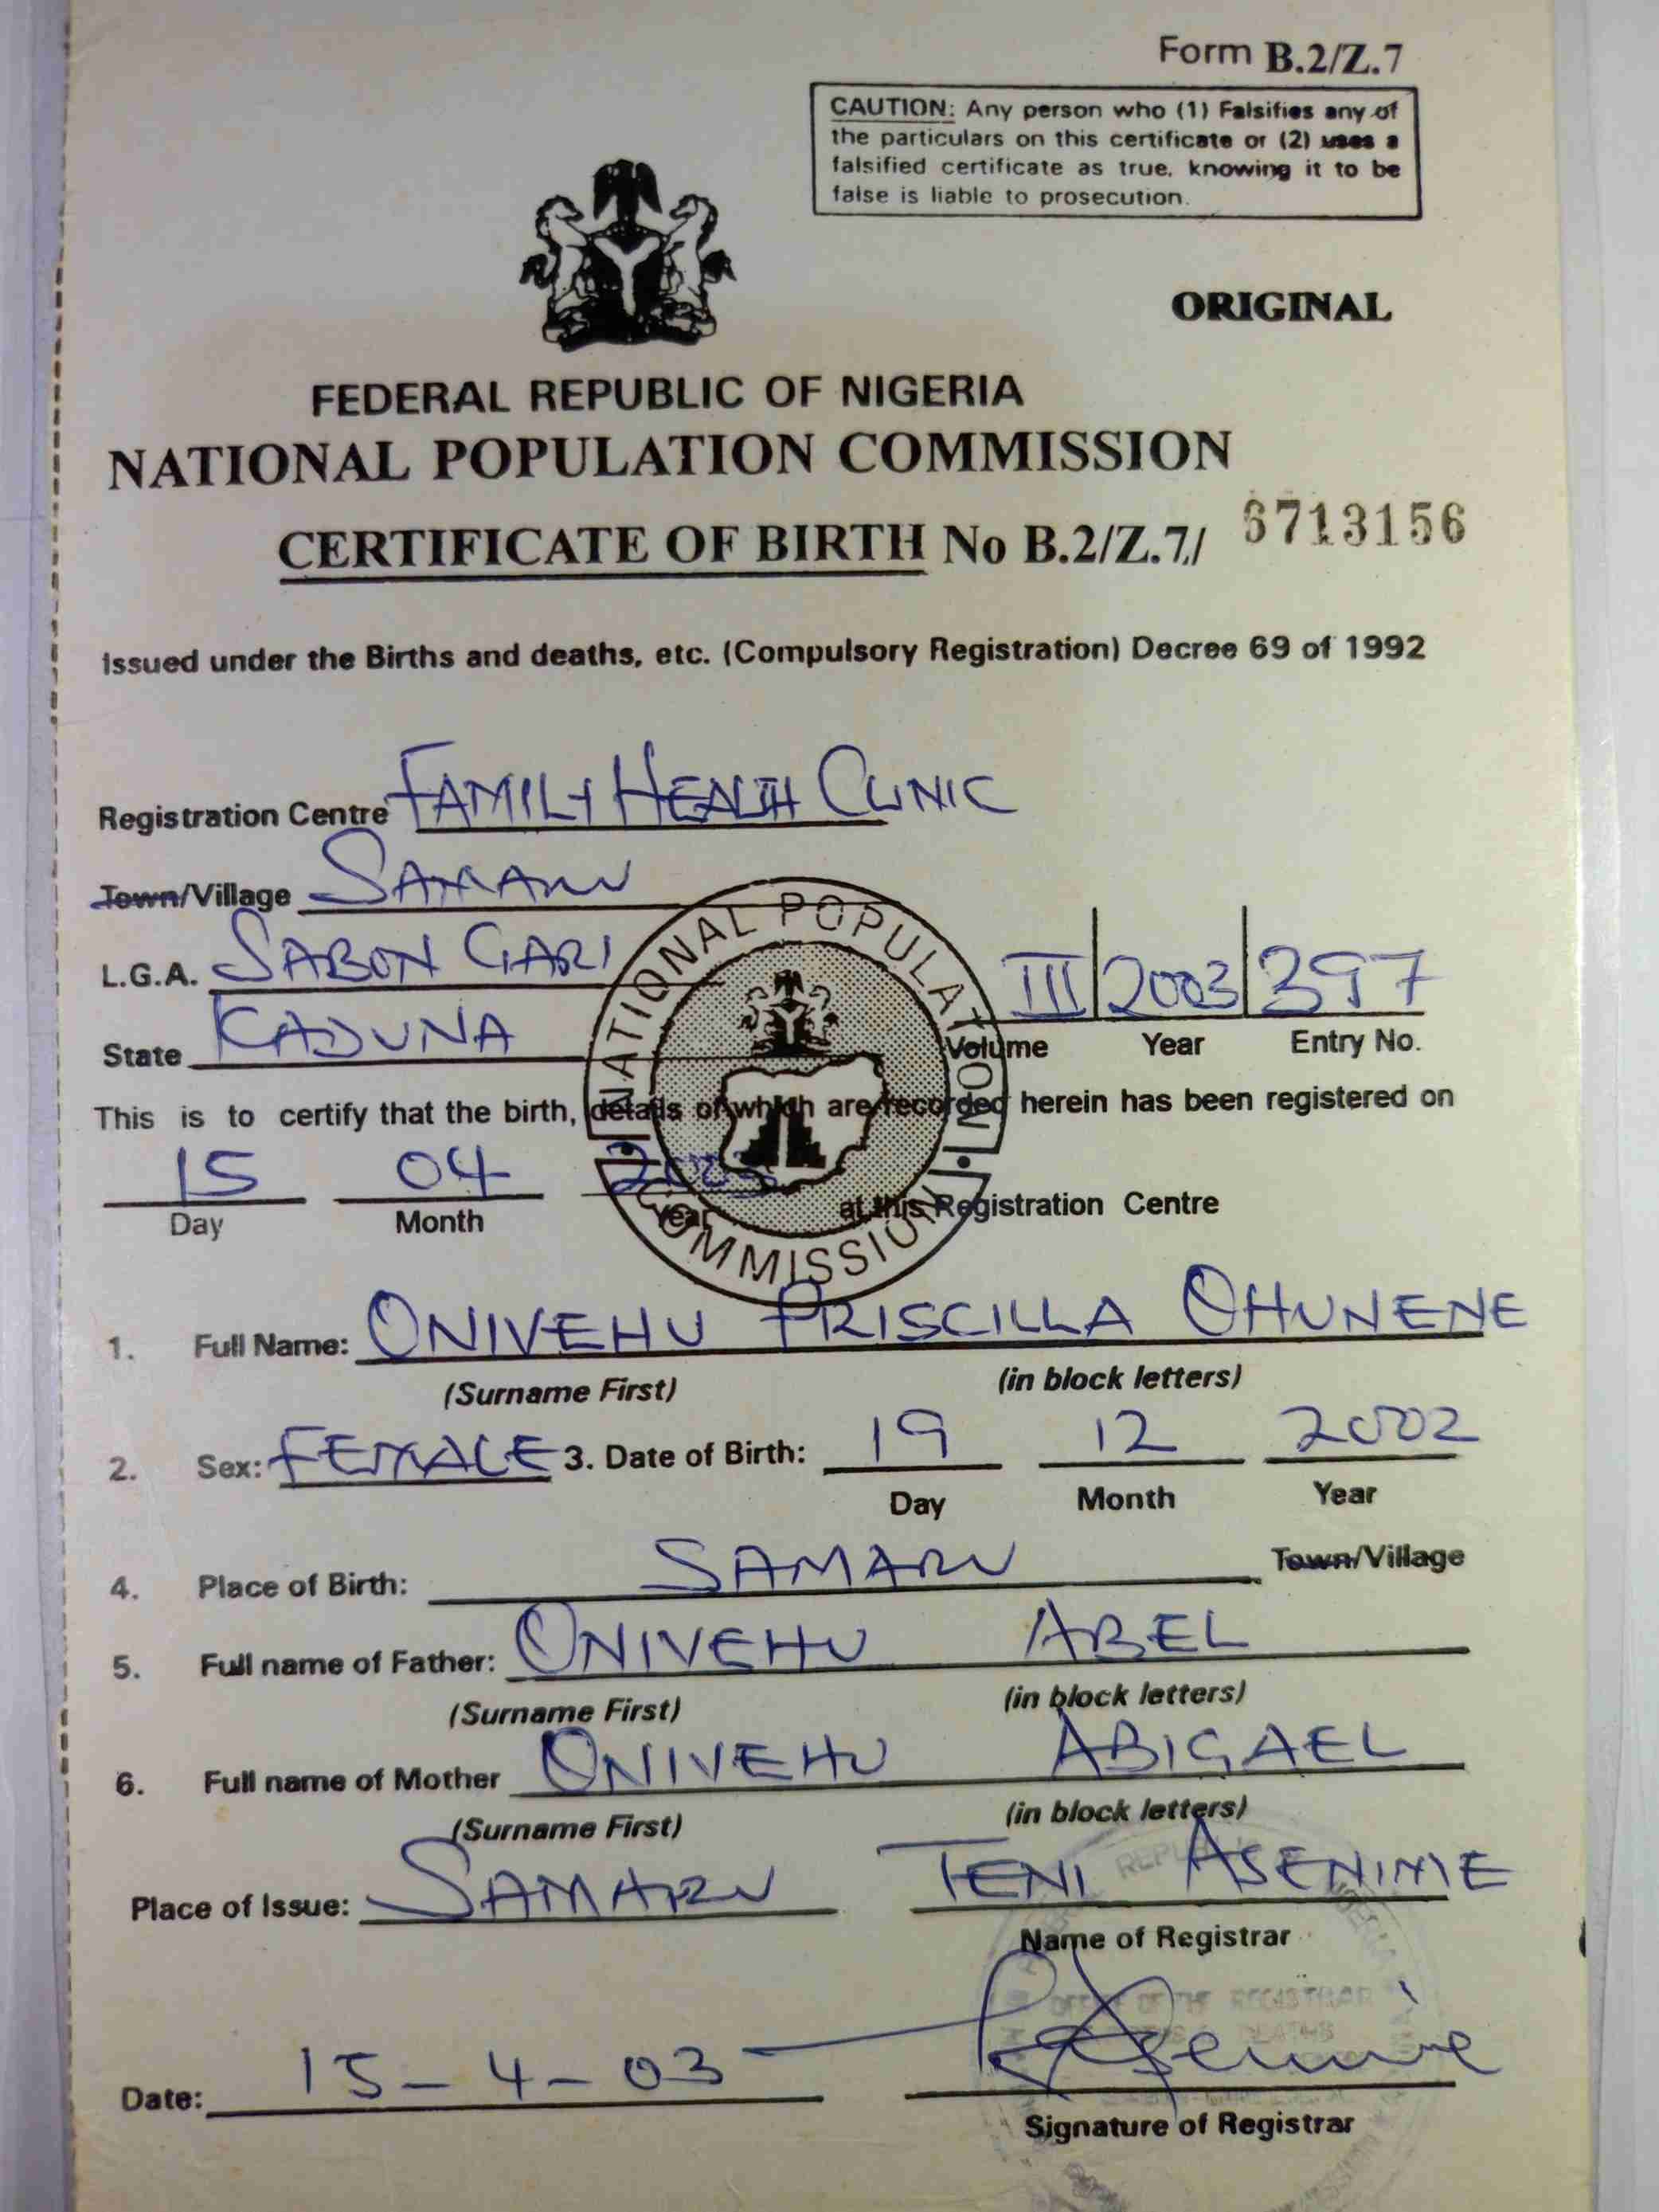 Form B.2/Z.7
CAUTION: Any person who (1) Falsifies any of
the particulars on this certificate or (2) uses a
falsified certificate as true, knowing it to be
false is liable to prosecution.
ORIGINAL
FEDERAL REPUBLIC OF NIGERIA
NATIONAL POPULATION COMMISSION
CERTIFICATE OF BIRTH No B.2/Z.7/ 6713156
Issued under the Births and deaths, etc. (Compulsory Registration) Decree 69 of 1992
Registration Centre FAMILY HEALTH CLINIC
Town/Village SAMARU
L.G.A. SABON GARI
III 2003 397
State KADUNA
Volume Year Entry No.
NATIONAL POPULATION COMMISSION
This is to certify that the birth, details of which are recorded herein has been registered on
15 04 2003
Day Month Year at this Registration Centre
1. Full Name: ONIVEHU PRISCILLA OHUNENE
(Surname First) (in block letters)
2. Sex: FEMALE 3. Date of Birth: 19 12 2002
Day Month Year
4. Place of Birth: SAMARU Town/Village
5. Full name of Father: ONIVEHU ABEL
(Surname First) (in block letters)
6. Full name of Mother ONIVEHU ABIGAEL
(Surname First) (in block letters)
Place of Issue: SAMARU TENI ASENIME
Name of Registrar
OFFICE OF THE REGISTRAR
DEATHS
Date: 15-4-03
Signature of Registrar